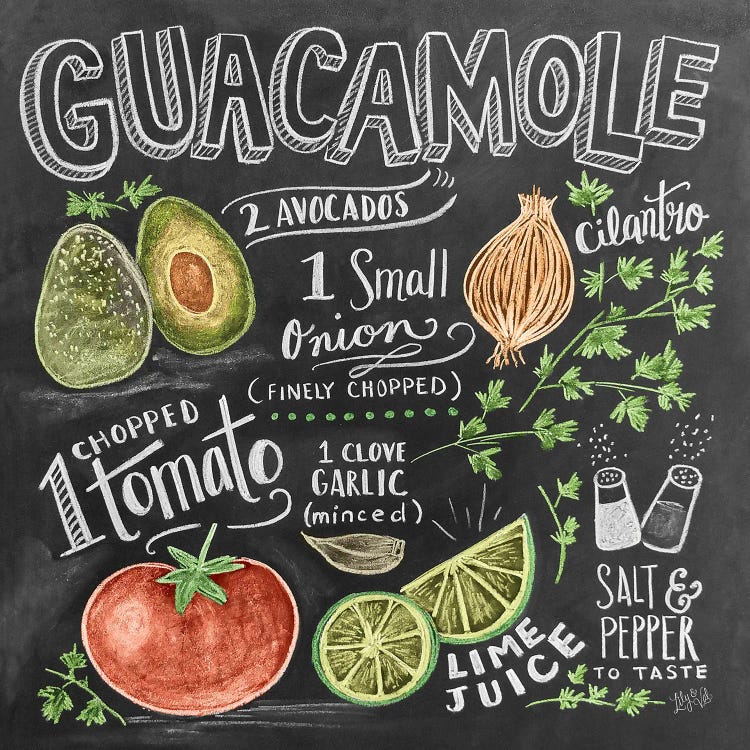 GUACAMOLE
2 AVOCADOS
cilantro
1 Small
Onion
(FINELY CHOPPED)
1 CHOPPED
tomato
1 CLOVE
GARLIC
(minced)
LIME
JUICE
SALT &
PEPPER
TO TASTE
Lily & Val